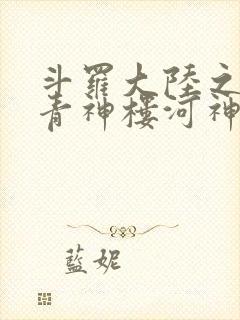 斗羅大陸之
青神樓河神
藍妮